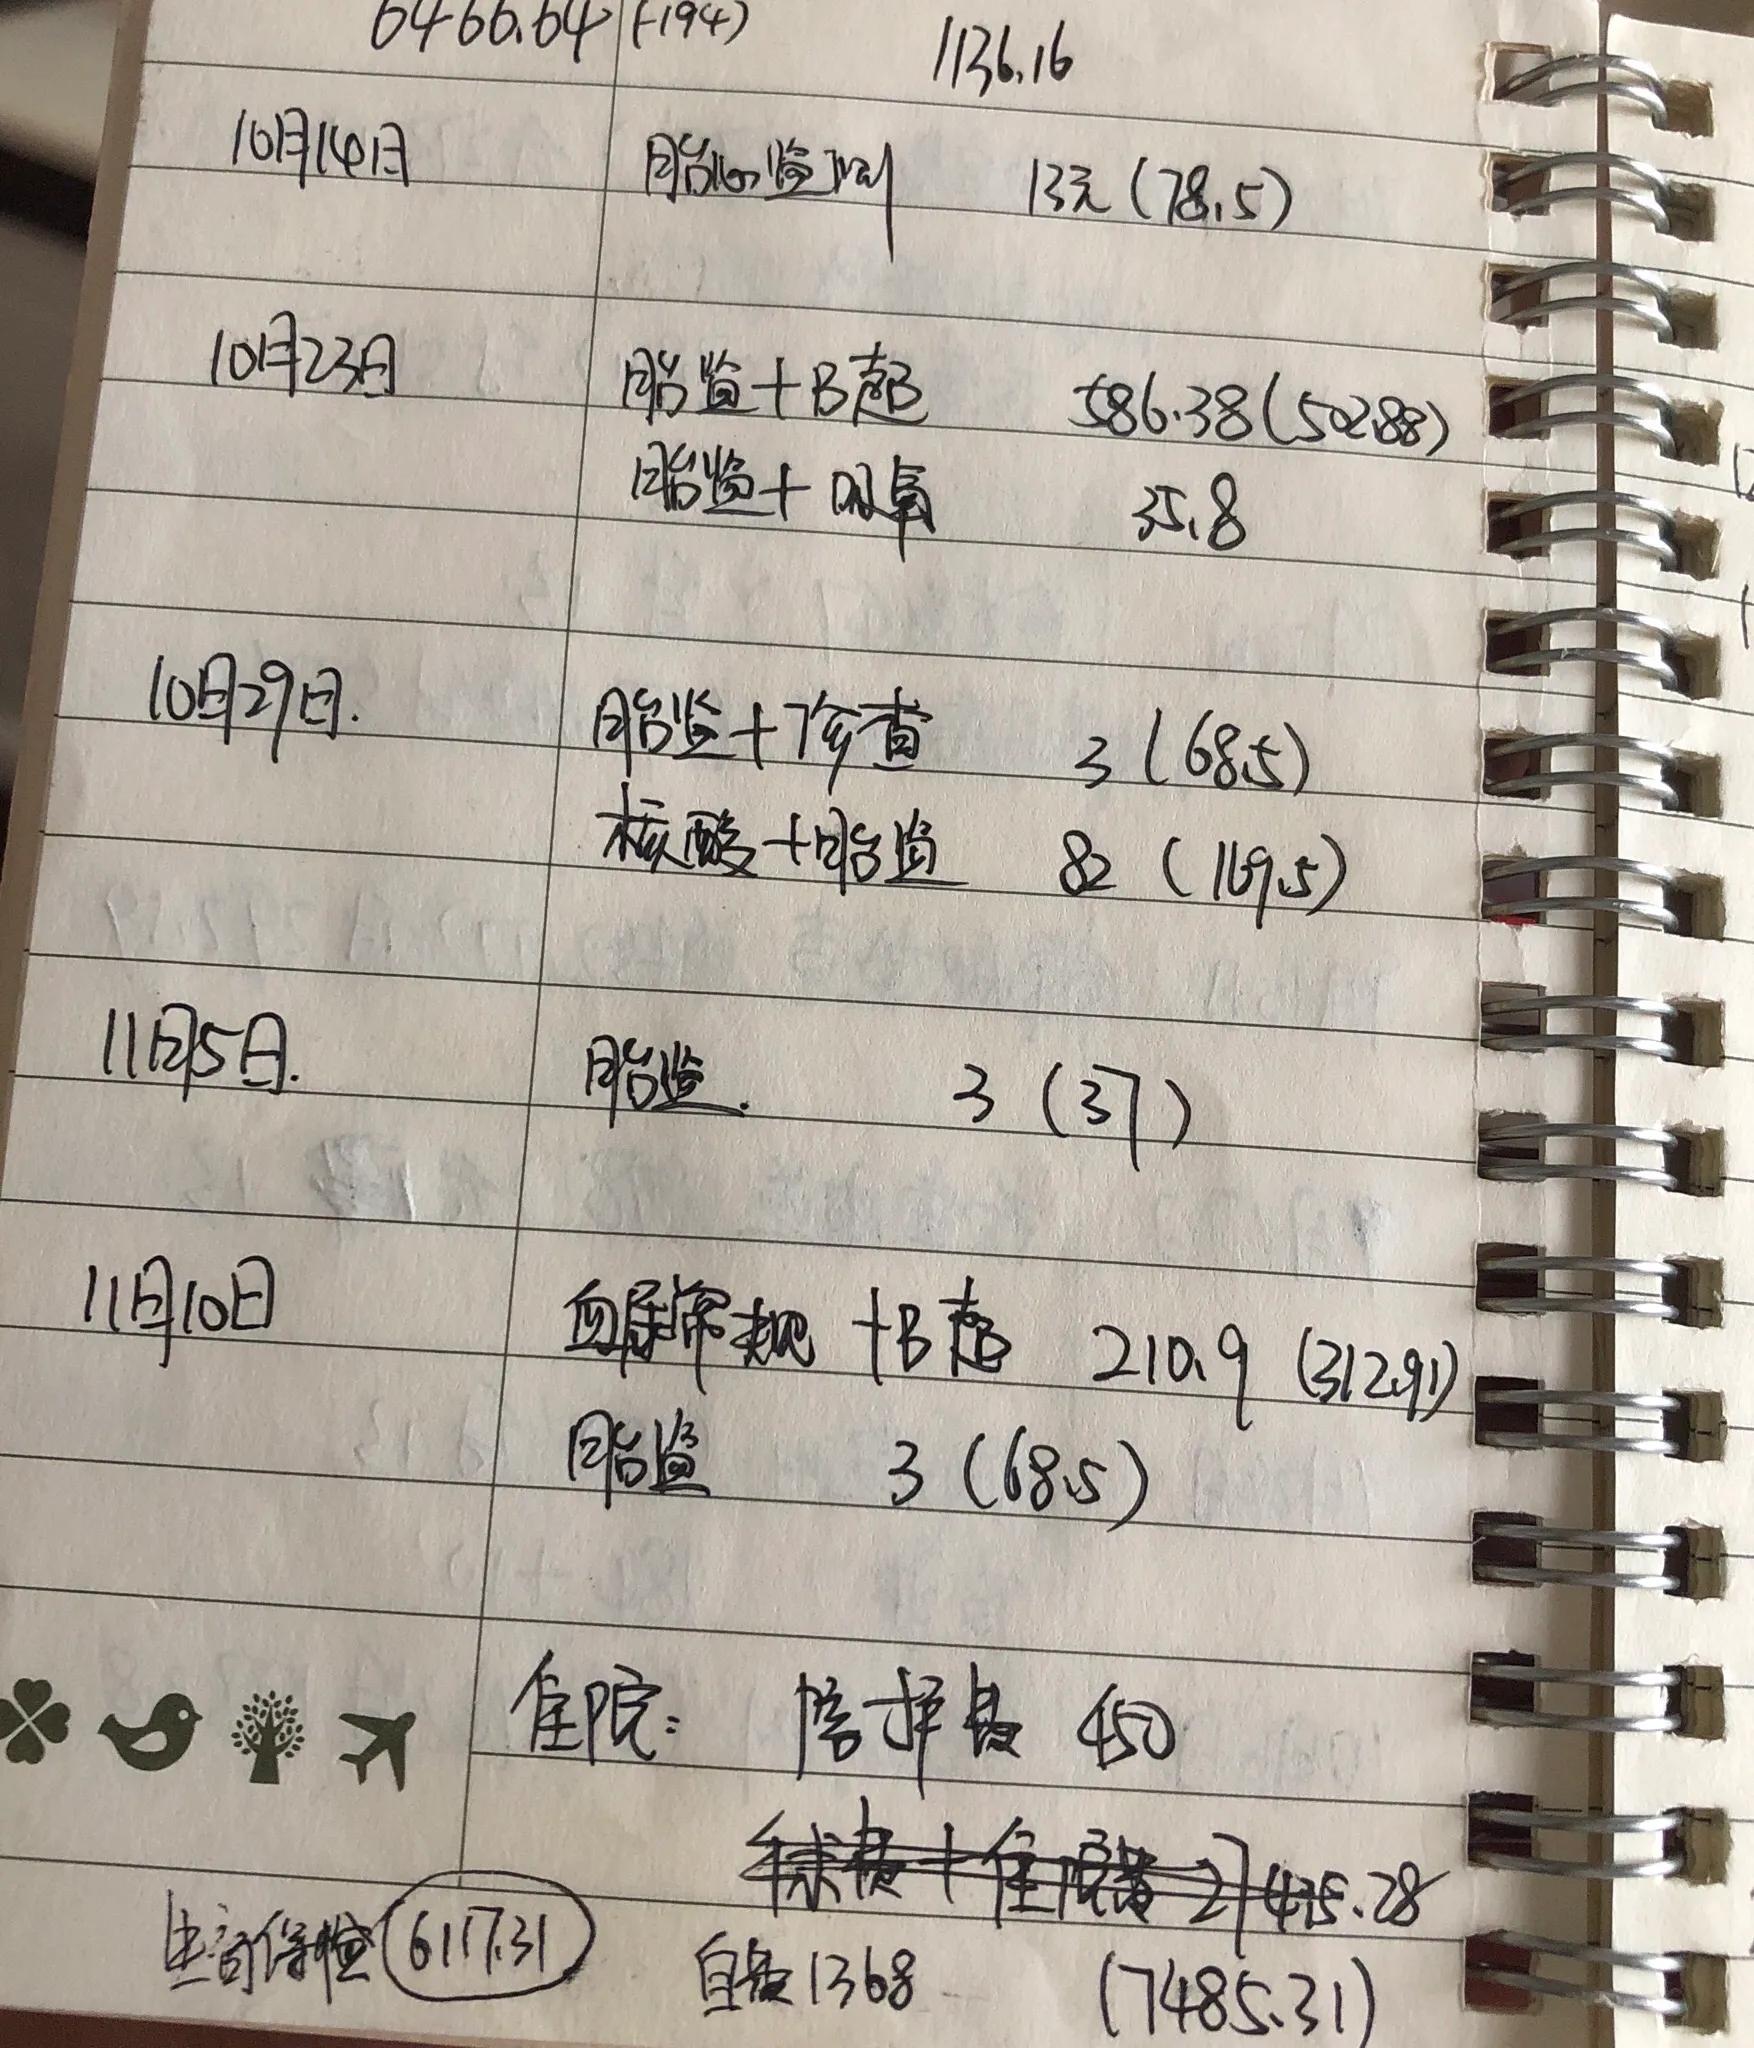 6466.64 (-194) 1136.16
10月14日 胎心监测 13元(78.5)
10月23日 胎监+B超 586.38(502.88)
胎监+吸氧 35.8
10月29日. 胎监+诊查 3(68.5)
核酸+胎监 82(169.5)
11月5日. 胎监. 3(37)
11月10日 血尿常规+B超 210.9(312.91)
胎监 3(68.5)
住院: 陪护费 450
手术费+住院费
生育保险 6117.31 自费1368 (7485.31)